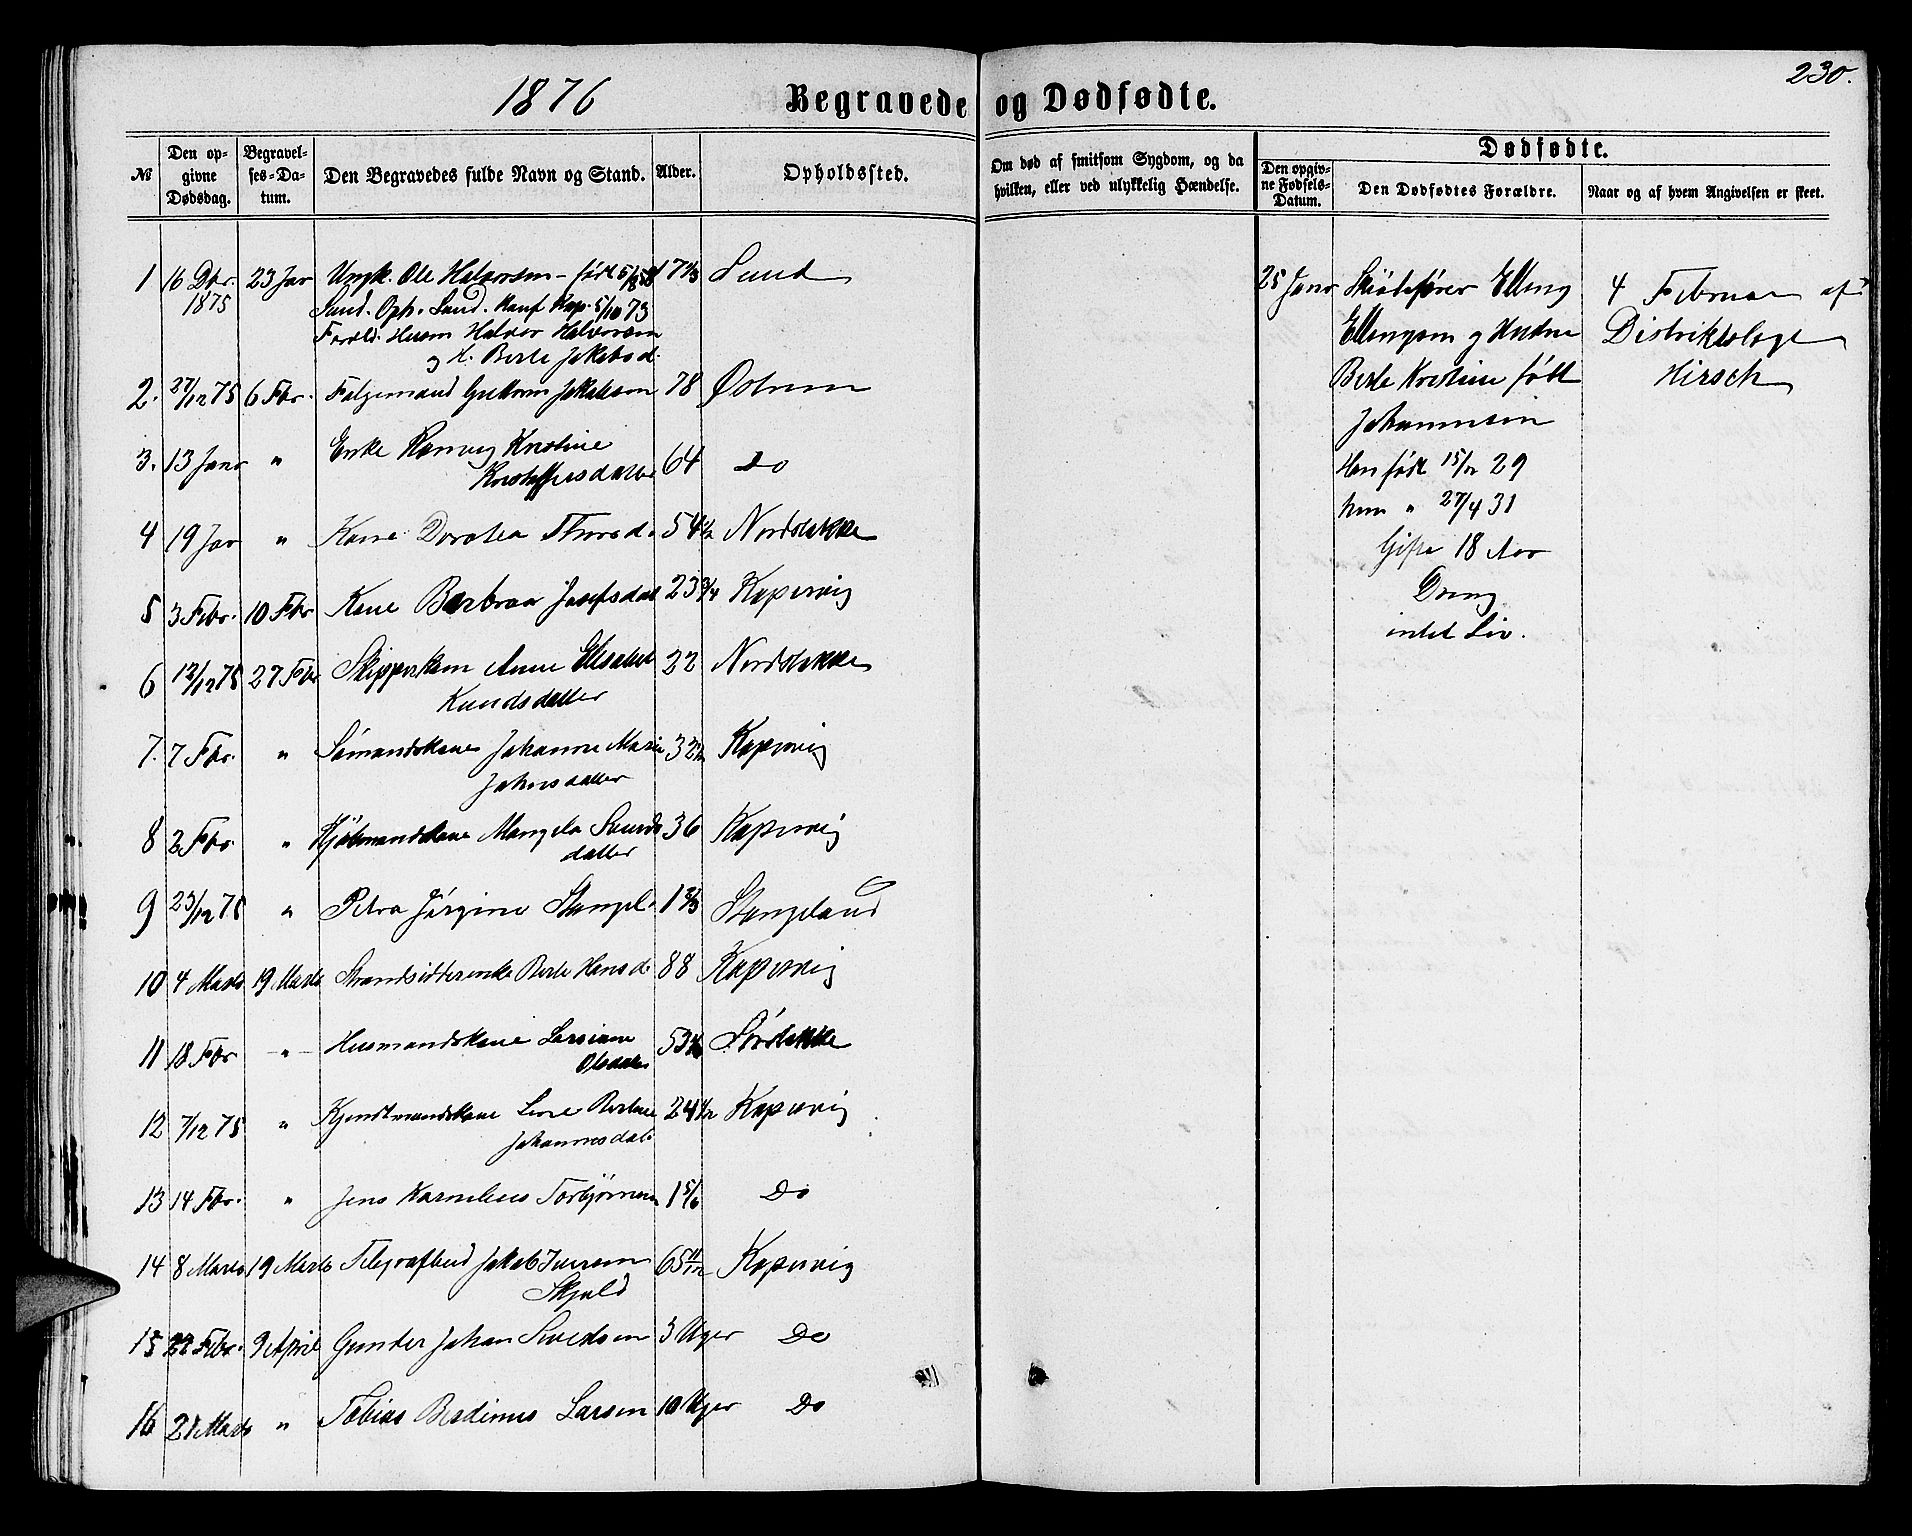 1876 Begravede og Dødfødte. 230.
№ Den opgivne Dødsdag. Begravelses-Datum. Den Begravedes fulde Navn og Stand. Alder. Opholdssted. Om død af smitsom Sygdom, og da hvilken, eller ved ulykkelig Hændelse. Dødfødte. Den opgivne Fødsels-Datum. Den Dødfødtes Forældre. Naar og af hvem Angivelsen er skeet.
1 16 Dbr. 1875 23 Jan Ungk. Ole Halvorsen - født Sund
Sund. Oph. Sund. Konf Kop. 5/10 73
Foreld. Husm Halvor Halvorsen
og H. Berte Jakobsd.
2. 27/12 75 6 Fbr. Følgemand Guttorm Jakobsen 78 Østrem
3. 13 Janr " Enke Ranveig Kristine
Kristoffersdatter 64 Do
4 19 Jan " Kone Dorotea Thorsd. 54 1/2 Nordstokke
5 3 Febr. 10 Fbr Kone Barbraa Josefsdat 23 3/4 Kopervig
6 12/12 75 27 Fbr Skipperkone Anne Elisabet 22 Nordstokke
Knudsdatter
7. 7 Fbr. " Sømandskone Johanne Marie 32 Kopervig
Johnsdatter
8 2 Fbr. " Kjøbmandskone Mangela Sjursdatter 36 Kopervig
9 23/12 75 " Petra Jørgine Stangel. 1 2/3 Stangeland
10 4 Marts 19 Marts Strandsidderenke Berte Hansd. 88 Kopervig
11 18 Fbr " Husmandskone Larsine
Olsdatter 53 Sørstokke
12 7/12 75 " Kjendtmandskone Lene Bertine 24 1/2 Kopervig
Johannesdat.
13 14 Fbr. " Jens Kornelius Torbjørnsen 1 5/6 Do
14 8 Marts 19 Marts Telegrafbud Jakob Iversen 65 11/12 Kopervig
Skjold
15 22 Febr. 9 April Gunder Johan Sivedsen 3 Uger Do
16 21 Marts " Tobias Berdinus Larsen 10 Uger Do
25 Janr Skiøtefører Elling 4 Februar af
Ellingsen og Hustru Distriktslæge
Berte Kristine født Hirsch
Johannesen
Han født 15/12 29
hun " 27/4 31
Gifte 18 Aar
Dreng
intet Liv.